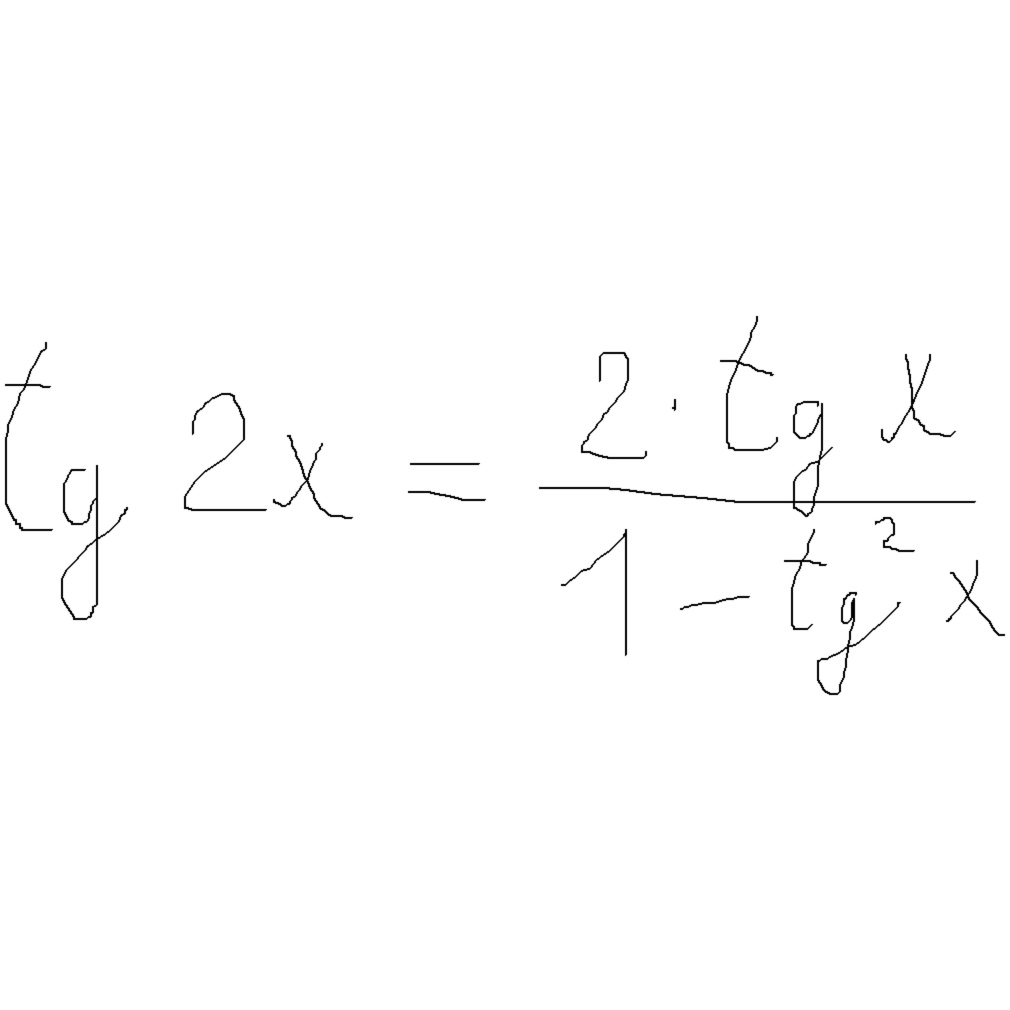 tg 2x = \frac{2 \cdot tg x}{1 - tg^2 x}